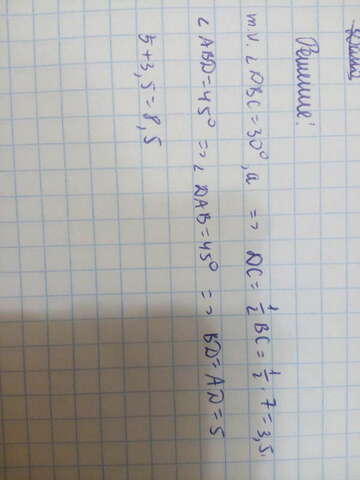 Решение:
т.к. ∠DBC=30°, а => DC=½BC=½·7=3,5.
∠ABD=45° => ∠DAB=45° => BD=AD=5
5+3,5=8,5